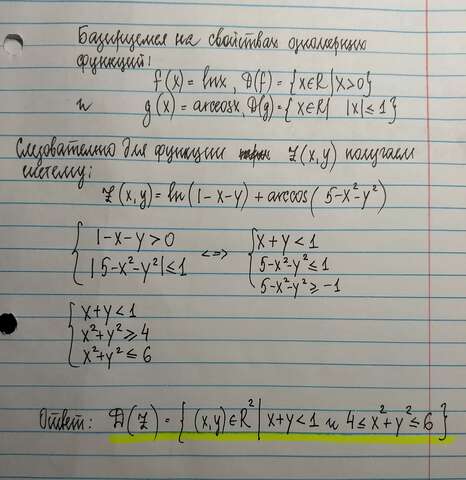 Базируемся на свойствах одномерных
функций:
f(x) = lnx, D(f) = {x∈R | x>0}
и g(x) = arccosx, D(g) = {x∈R | |x|≤1}
Следователно для функции Z(x,y) получаем
систему:
Z(x,y) = ln(1-x-y) + arccos(5-x²-y²)
{ 1-x-y>0 <=> { x+y<1
|5-x²-y²|≤1 5-x²-y²≤1
5-x²-y²≥-1
{ x+y<1
x²+y²≥4
x²+y²≤6
Ответ: D(Z) = { (x,y)∈R² | x+y<1 и 4≤x²+y²≤6 }